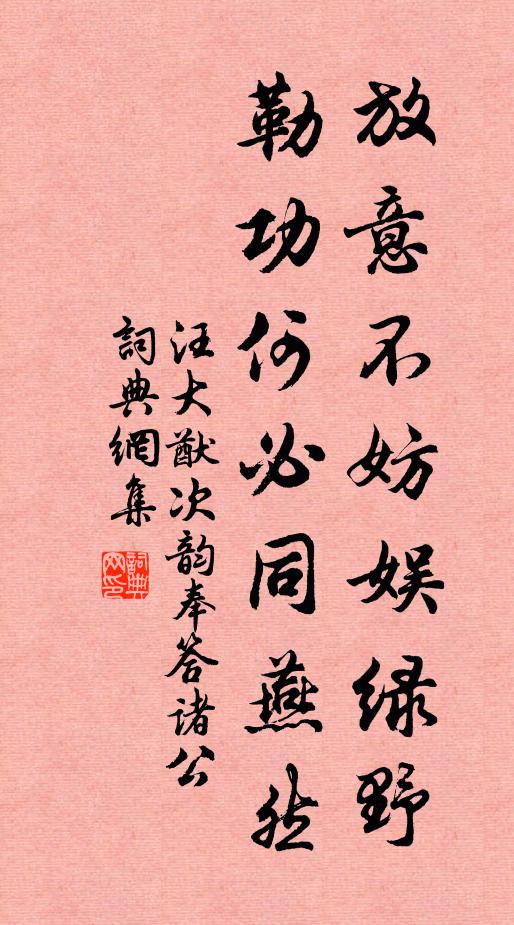 放意不妨娱绿野
勒功何必同燕然
汪大猷次韵奉答诸公
詞典網集
詞典网印